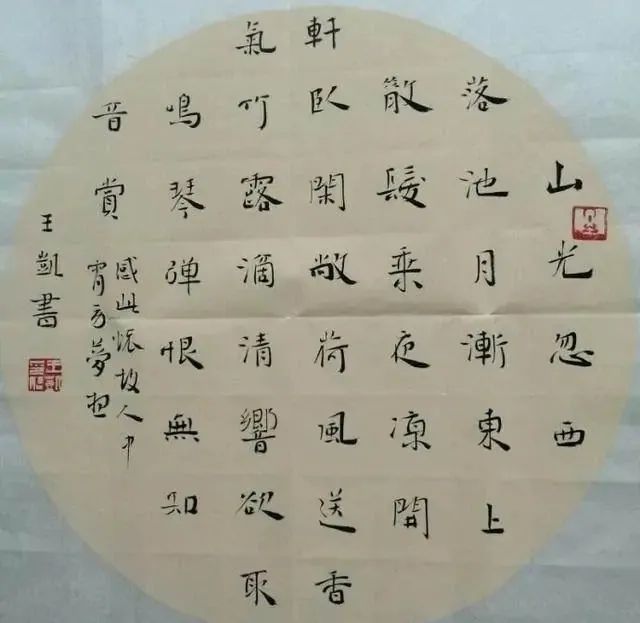 山光忽西
落池月漸東上
散髮乘夜凉開
軒臥閑敞荷風送香
氣竹露滴清響欲取
鳴琴彈恨無知
音賞
感此懷故人中
宵勞夢想
王凱書